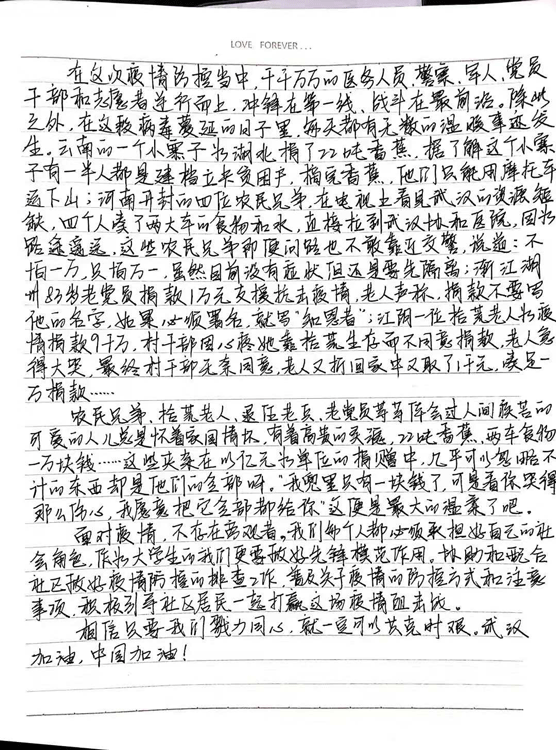 LOVE FOREVER...
在这次疫情防控当中,千千万万的医务人员、警察、军人、党员
干部和志愿者逆行而上,冲锋在第一线、战斗在最前沿。除此
之外,在这段病毒蔓延的日子里,每天都有无数的温暖事迹发
生。云南的一个小寨子为湖北捐了22吨香蕉,据了解这个小寨
子有一半人都是建档立卡贫困户,摘完香蕉,他们只能用摩托车
运下山;河南开封的四位农民兄弟,在电视上看见武汉的资源短
缺,四个人凑了两大车的食物和水,直接拉到武汉协和医院,因为
路途遥远,这些农民兄弟即便问路也不敢靠近交警,说道:不
怕一万,只怕万一,虽然目前没有症状但还是要先隔离;浙江湖
州83岁老党员捐款1万元支援抗击疫情,老人声称,捐款不要写
他的名字,如果必须署名,就写"知恩者";江阴一位拾荒老人为疫
情捐款9千万,村干部因心疼她靠拾荒生存而不同意捐款,老人急
得大哭,最终村干部无奈同意,老人又折回家中又取了1千元,凑足一
万捐款……
农民兄弟、拾荒老人、退伍老兵、老党员等等体会过人间疾苦的
可爱的人儿总是怀着家国情怀,有着高贵的灵魂,22吨香蕉、两车食物
一万块钱……这些夹杂在以亿元为单位的捐赠中,几乎可以忽略不
计的东西却是他们的全部啊。"我兜里只有一块钱了,可是看你哭得
那么伤心,我愿意把它全部都给你"这便是最大的温柔了吧。
面对疫情,不存在旁观者。我们每个人都必须承担好自己的社
会角色,作为大学生的我们更要做好先锋模范作用。协助和配合
社区做好疫情防控的排查工作,普及关于疫情的防控方式和注意
事项,积极引导社区居民一起打赢这场疫情阻击战。
相信只要我们戮力同心,就一定可以共克时艰。武汉
加油,中国加油!